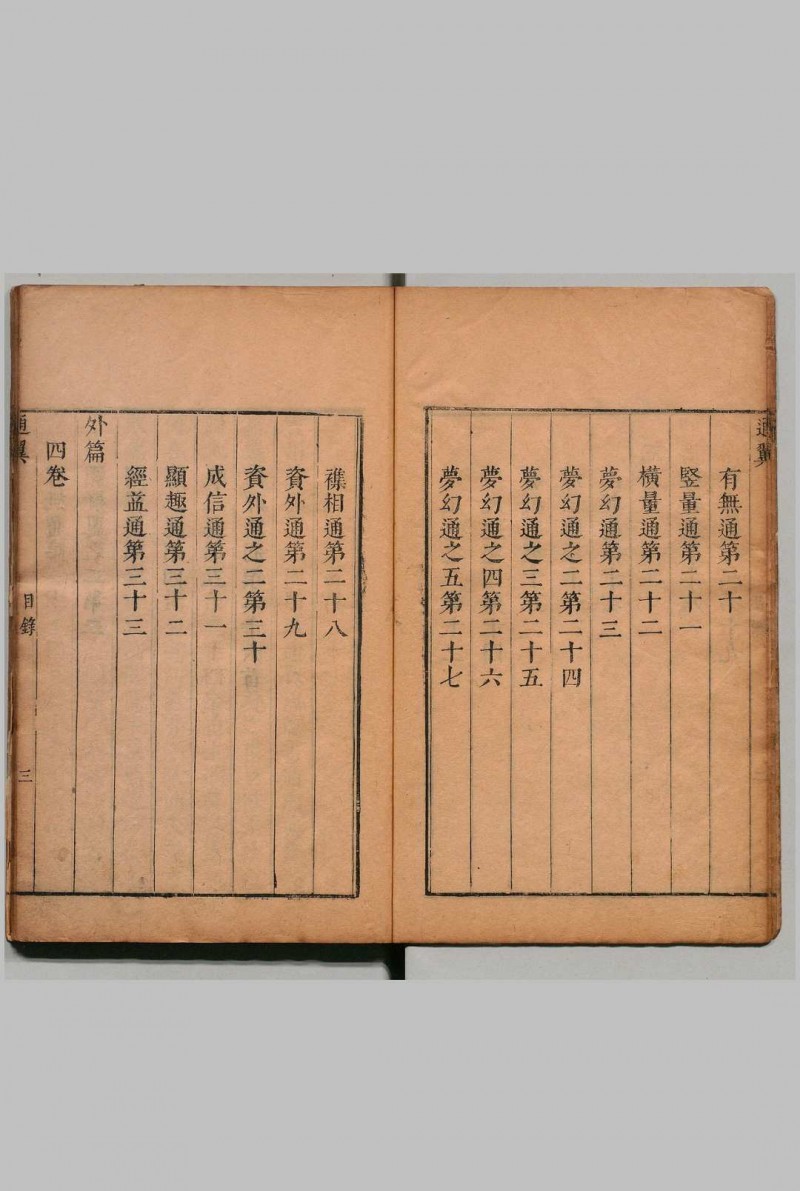 通翼
有無通第二十
竪量通第二十一
橫量通第二十二
夢幻通第二十三
夢幻通之二第二十四
夢幻通之三第二十五
夢幻通之四第二十六
夢幻通之五第二十七
襍相通第二十八
資外通第二十九
資外通之二第三十
成信通第三十一
顯趣通第三十二
經盖通第三十三
外篇
四卷
通翼 目錄 三